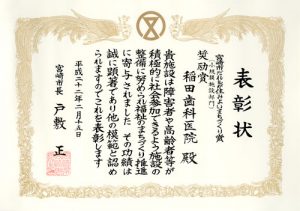 表彰状
宮崎市だれもが住みよいまちづくり賞
奨励賞
稲田歯科医院 殿
貴施設は障害者や高齢者等が
積極的に社会参加できるよう施設の
整備に努められ福祉のまちづくり推進
に寄与されました その功績は
誠に顕著であり他の模範と認め
られますのでこれを表彰します
平成二十二年二月十五日
宮崎市長 戸敷 正